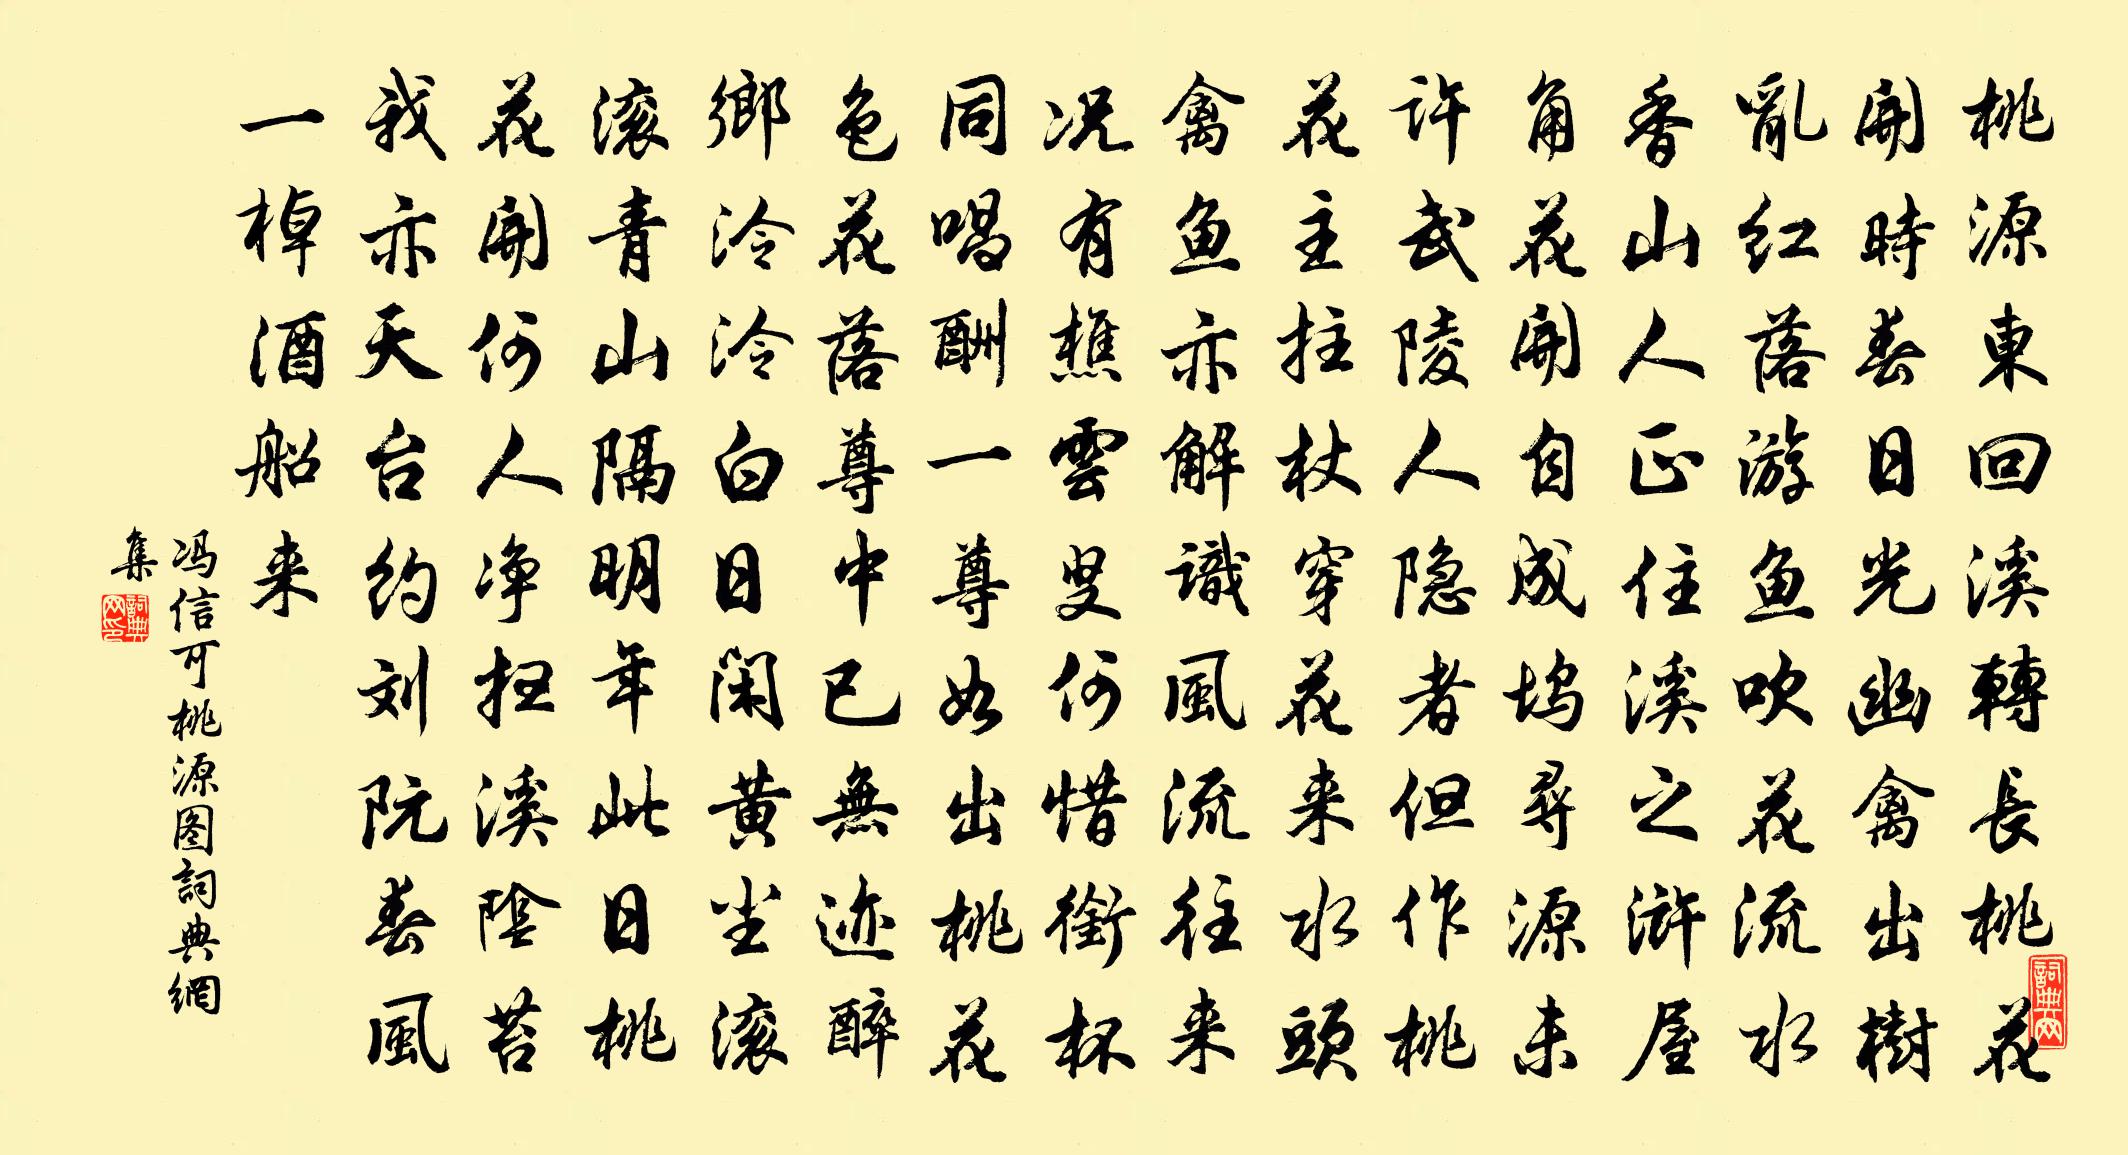 桃源東回溪轉長桃花
開時春日光幽禽出樹
亂紅落游魚吹花流水
香山人正住溪之滸屋
角花開自成塢尋源未
許武陵人隐者但作桃
花主拄杖穿花来水頭
禽魚亦解識風流往来
况有樵雲叟何惜銜杯
同唱酬一尊如出桃花
色花落尊中已無迹醉
鄉泠泠白日闲黄尘滚
滚青山隔明年此日桃
花開何人净扫溪陰苔
我亦天台約刘阮春風
一棹酒船来
冯信可桃源图詞典網
集
詞典网
詞典网印